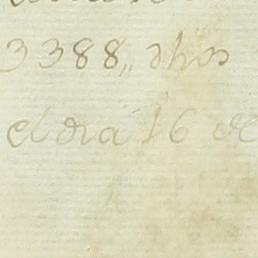 3388,, dhos
el dia 16 de